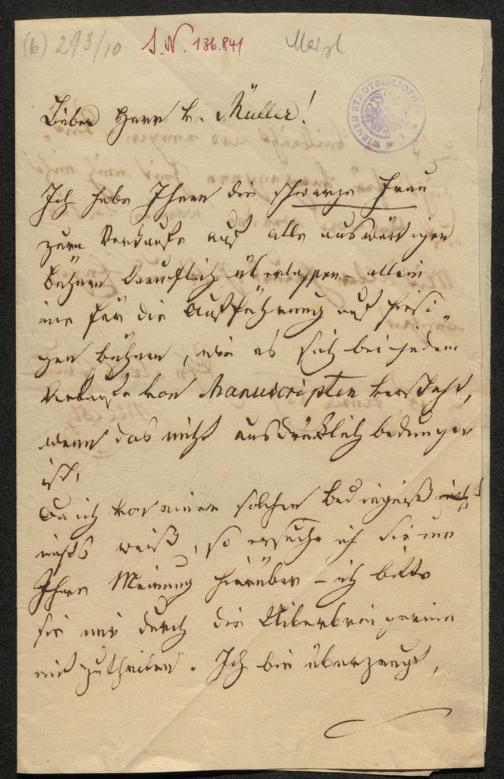 (b) 293/10
J.N. 136.841
Meisl
WIENER STADTBIBLIOTHEK
Lieber Herr v. Müller!
Ich habe Ihnen die schwarze Frau
zum Verkaufe auf alle auswärtigen
Bühnen käuflich überlassen – allein
nie für die Aufführung auf hiesi-
gen Bühnen, wie es sich bei jedem
Verkaufe von Manuscripten versteht,
wenn das nicht ausdrücklich bedungen
ist,
Da ich von einem solchen Bedingniß
nichts weiß, so ersuche ich Sie um
Ihre Meinung hierüber – ich bitte
sie mir durch die Überbringerinn
mitzutheilen. Ich bin überzeugt,